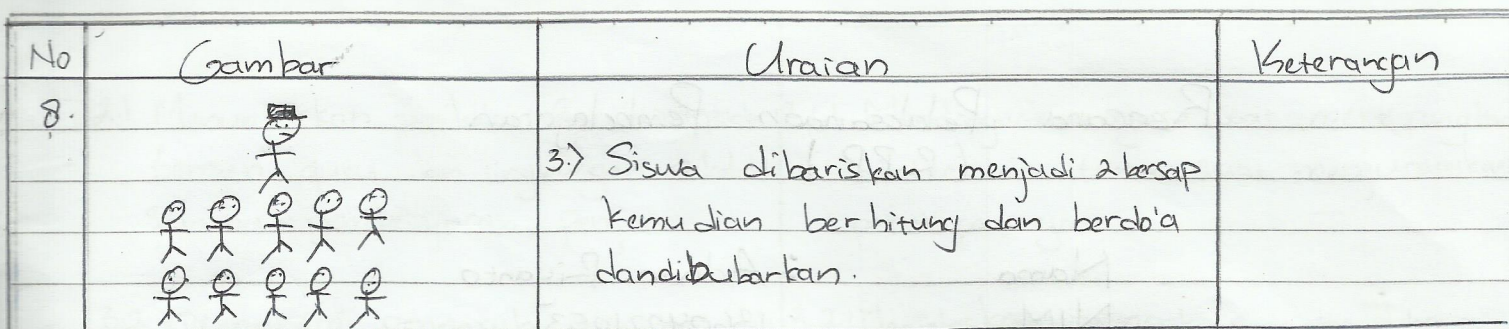 No Gambar Uraian Keterangan
8.
3.) Siswa dibariskan menjadi 2 bersap
kemudian berhitung dan berdo'a
dandibubarkan.